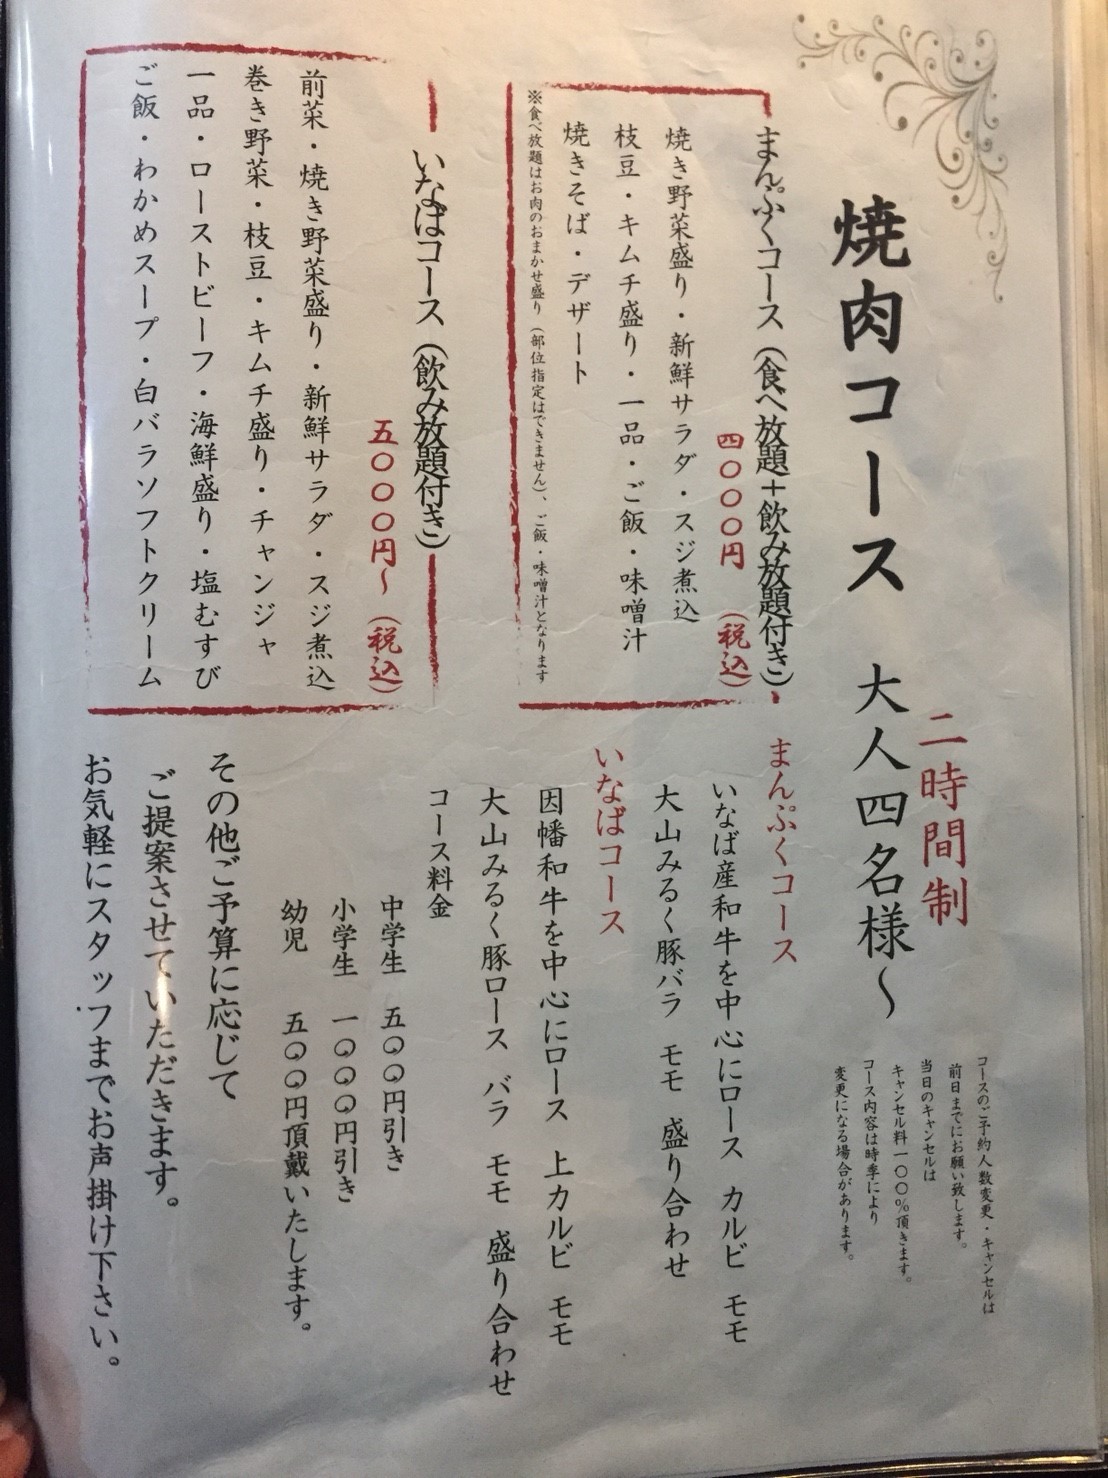 焼肉コース 大人四名様〜
二時間制
コースのご予約人数変更・キャンセルは
前日までにお願い致します。
当日のキャンセルは
キャンセル料一〇〇%頂きます。
コース内容は時季により
変更になる場合があります。
まんぷくコース(食べ放題+飲み放題付き)
四〇〇〇円 (税込)
焼き野菜盛り・新鮮サラダ・スジ煮込
枝豆・キムチ盛り・一品・ご飯・味噌汁
焼きそば・デザート
※食べ放題はお肉のおまかせ盛り(部位指定はできません)、ご飯・味噌汁となります
いなばコース(飲み放題付き)
五〇〇〇円〜(税込)
前菜・焼き野菜盛り・新鮮サラダ・スジ煮込
巻き野菜・枝豆・キムチ盛り・チャンジャ
一品・ローストビーフ・海鮮盛り・塩むすび
ご飯・わかめスープ・白バラソフトクリーム
まんぷくコース
いなば産和牛を中心にロース カルビ モモ
大山みるく豚バラ モモ 盛り合わせ
いなばコース
因幡和牛を中心にロース 上カルビ モモ
大山みるく豚ロース バラ モモ 盛り合わせ
コース料金
中学生 五〇〇円引き
小学生 一〇〇〇円引き
幼児 五〇〇円頂戴いたします。
その他ご予算に応じて
ご提案させていただきます。
お気軽にスタッフまでお声掛け下さい。